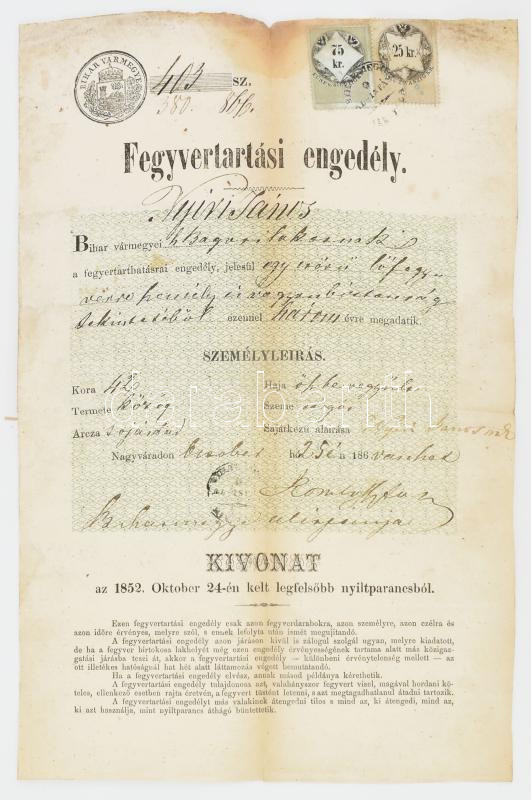 BIHAR VÁRMEGYE
403 sz.
580. 866.
75
kr.
25 kr.
Fegyvertartási engedély.
Nyiri János
Bihar vármegyei
a fegyvertarthatásrai engedély, jelesül egy csövű lőfegy-
verre személy és vagyonbiztonság
tekintetéből ezennel három évre megadatik.
SZEMÉLYLEIRÁS.
Kora 42 Haja
Termete közép Szeme
Arcza tojásdad Sajátkezű aláirása Nyiri János mk
Nagyváradon hó 25én 186
KIVONAT
az 1852. Oktober 24-én kelt legfelsőbb nyiltparancsból.
Ezen fegyvertartási engedély csak azon fegyverdarabokra, azon személyre, azon czélra és
azon időre érvényes, melyre szól, s ennek lefolyta után ismét megujitandó.
A fegyvertartási engedély azon járáson kivül is zálogul szolgál ugyan, melyre kiadatott,
de ha a fegyver birtokosa lakhelyét még ezen engedély érvényességének tartama alatt más közigaz-
gatási járásba teszi át, akkor a fegyvertartási engedély — különbeni érvénytelenség mellett — az
ott illetékes hatóságnál hat hét alatt láttamozás végett bemutatandó.
Ha a fegyvertartási engedély elvész, annak másod példánya kérethetik.
A fegyvertartási engedély tulajdonosa azt, valahányszor fegyvert visel, magával hordani kö-
teles, ellenkező esetben rajta éretvén, a fegyvert tüstént letenni, s azt megtagadhatlanul átadni tartozik.
A fegyvertartási engedélyt más valakinek átengedni tilos s mind az, ki átengedi, mind az,
ki azt használja, mint nyiltparancs áthágó büntettetik.